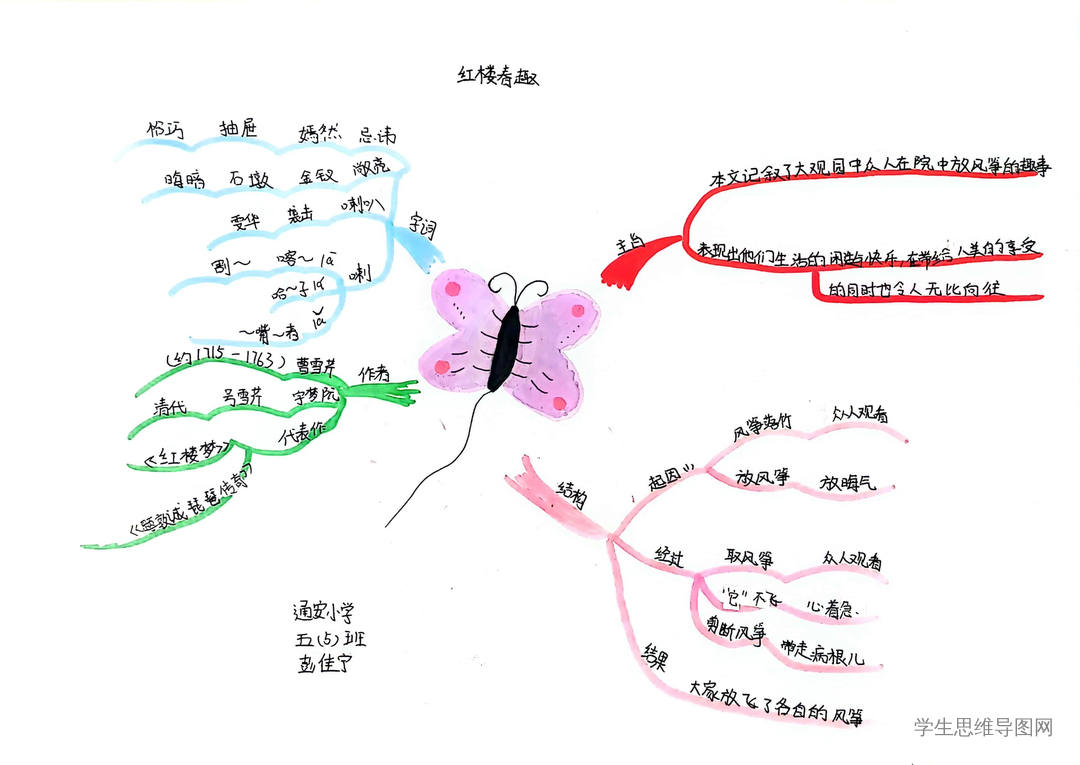 红楼春趣
忌讳
嫣然
抽屉
敞亮
金钗
石墩
晦暗
喇叭
袭击
雯华
字词
喇
喀~ lā
剐~
哈~子 lá
~嘴~舌 lǎ
作者
曹雪芹
(约1715-1763)
字梦阮
号雪芹
清代
代表作
《红楼梦》
琵琶传奇》
主旨
本文记叙了大观园中众人在院中放风筝的趣事
表现出他们生活的闲趣与快乐,在带给人美的享受
的同时也令人无比向往
结构
起因
风筝落竹
众人观看
放风筝
放晦气
经过
取风筝
众人观看
"它"不飞
心着急.
剪断风筝
带走病根儿
结果
大家放飞了各自的风筝
通安小学
五(5)班
彭佳宁
学生思维导图网